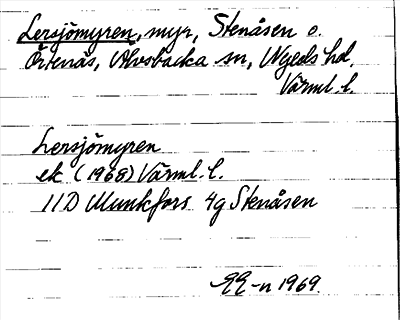 Lersjömyren, myr, Stenåsen o.
Örtenäs, Alvsbacka sn, Nyeds hd.
Värml. l.
Lersjömyren
ek (1968) Värml. l.
11D Munkfors 4g Stenåsen
EE-n 1969.